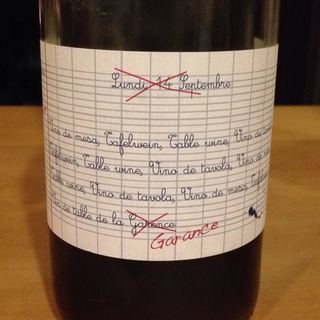 Lundi 14 Septembre
Vino de mesa, Tafelwein, Table wine, Vino da
Tafelwein, Table wine, Vino de tavola, Vino
Table wine, Vino de tavola, Vino de mesa, Tafel
de table de la Garence
Garance